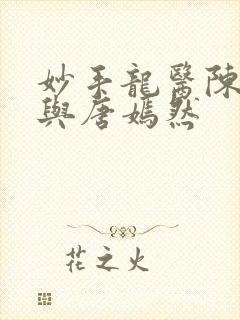 妙手龍醫陳
與唐嫣然
花之火